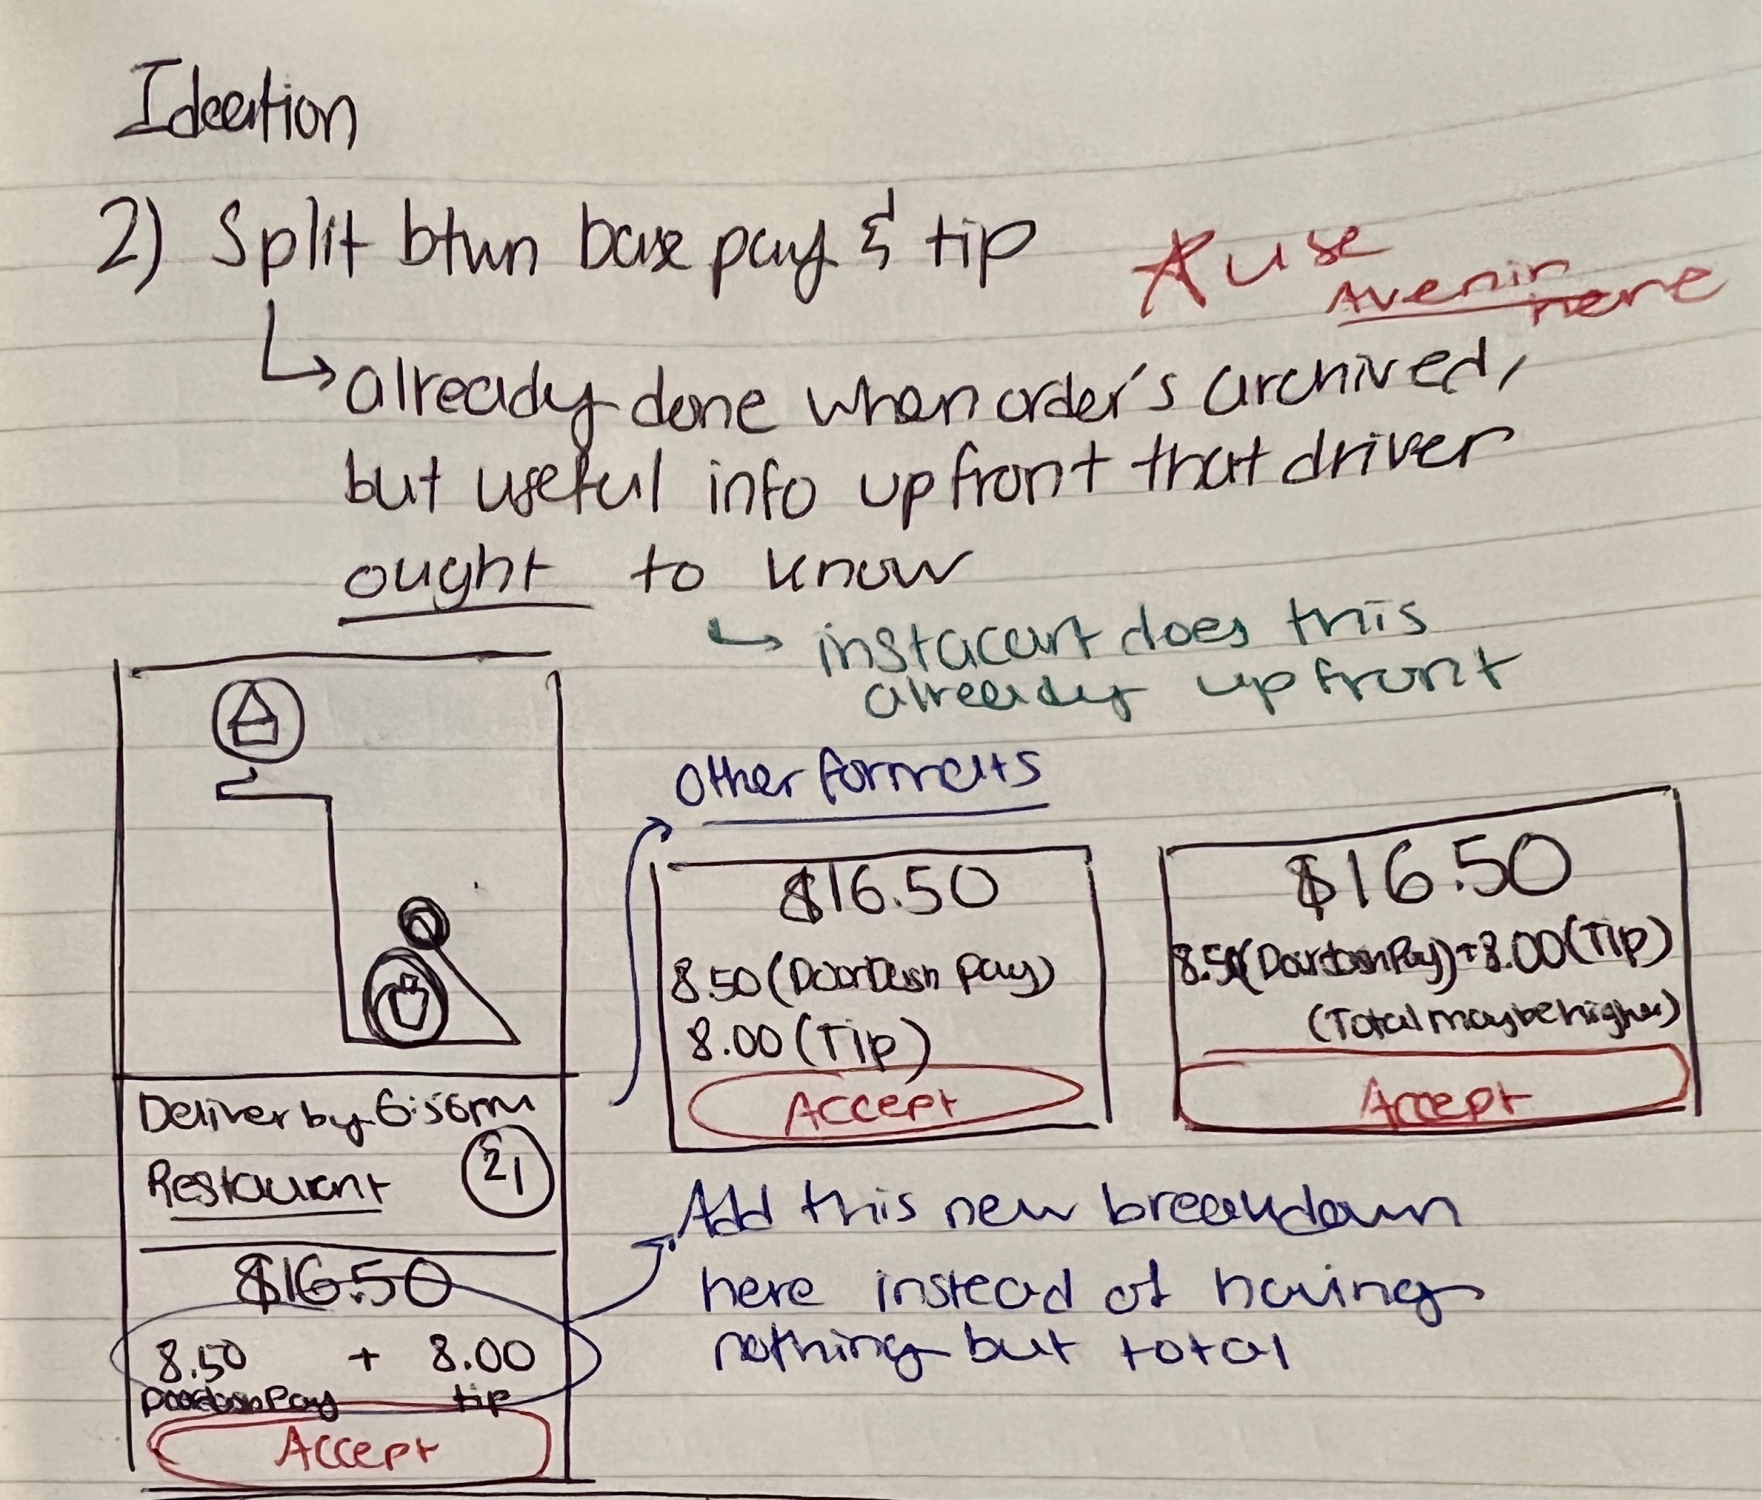 Ideation
2) Split btwn base pay & tip
use
Avenir
here
already done when order's archived,
but useful info upfront that driver
ought to know
instacart does this
already upfront
Other formats
$16.50
8.50 (DoorDash Pay)
8.00 (Tip)
Accept
$16.50
8.50 (DoorDash Pay) + 8.00 (Tip)
(Total may be higher)
Accept
Deliver by 6:56pm
Restaurant
21
$16.50
8.50 + 8.00
DoorDash Pay tip
Accept
Add this new breakdown
here instead of having
nothing but total